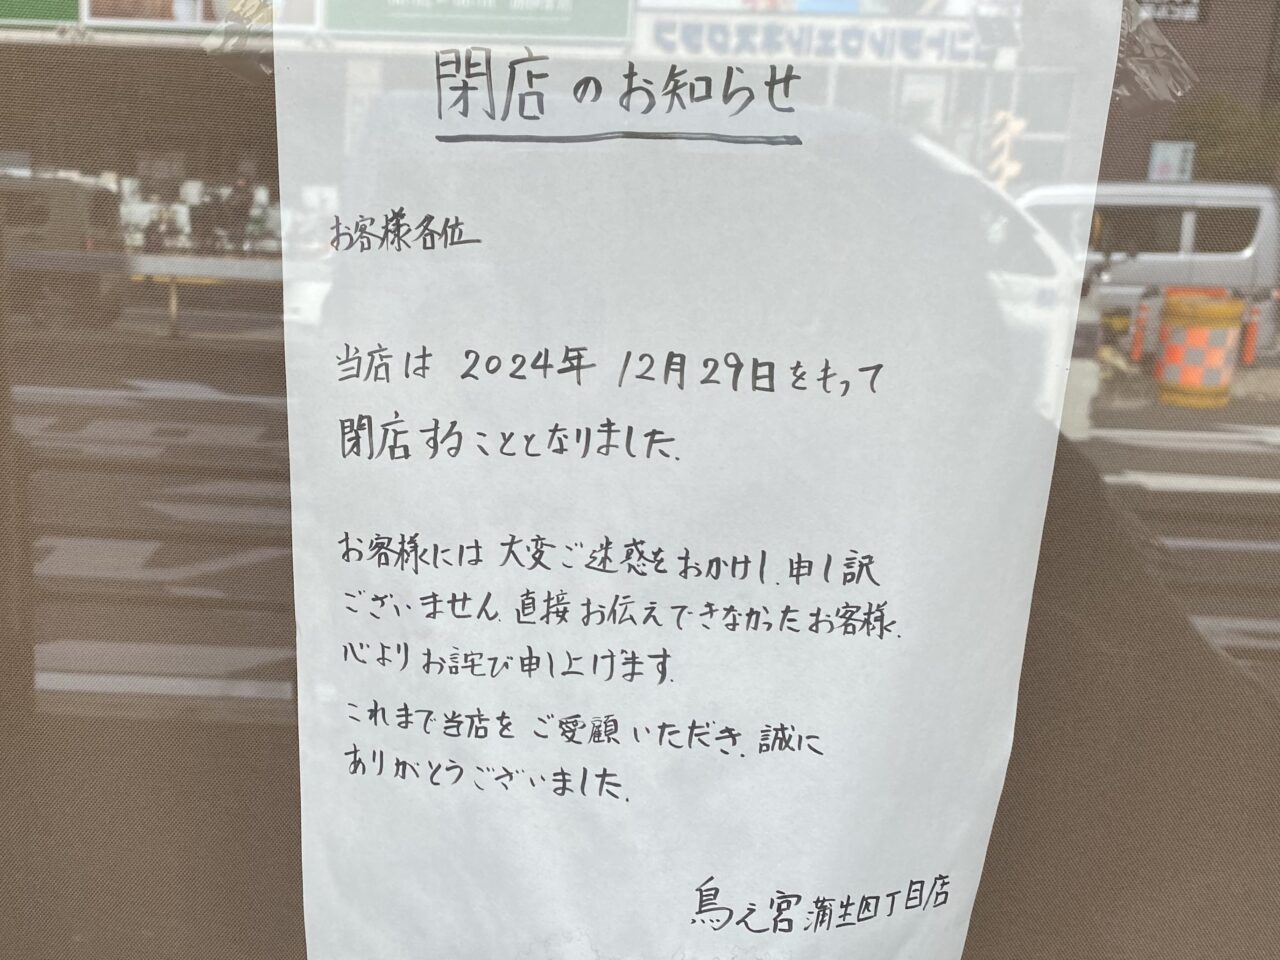 閉店のお知らせ
お客様各位
当店は 2024年 12月29日をもって
閉店することとなりました.
お客様には大変ご迷惑をおかけし.申し訳
ございません.直接お伝えできなかったお客様.
心よりお詫び申し上げます.
これまで当店をご愛顧いただき.誠に
ありがとうございました.
鳥之宮 蒲生四丁目店